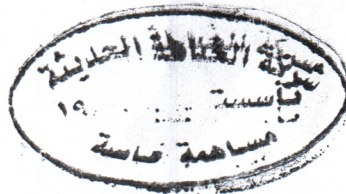 شركة الخياطة الحديثة
تأسست
١٩
مساهمة خاصة